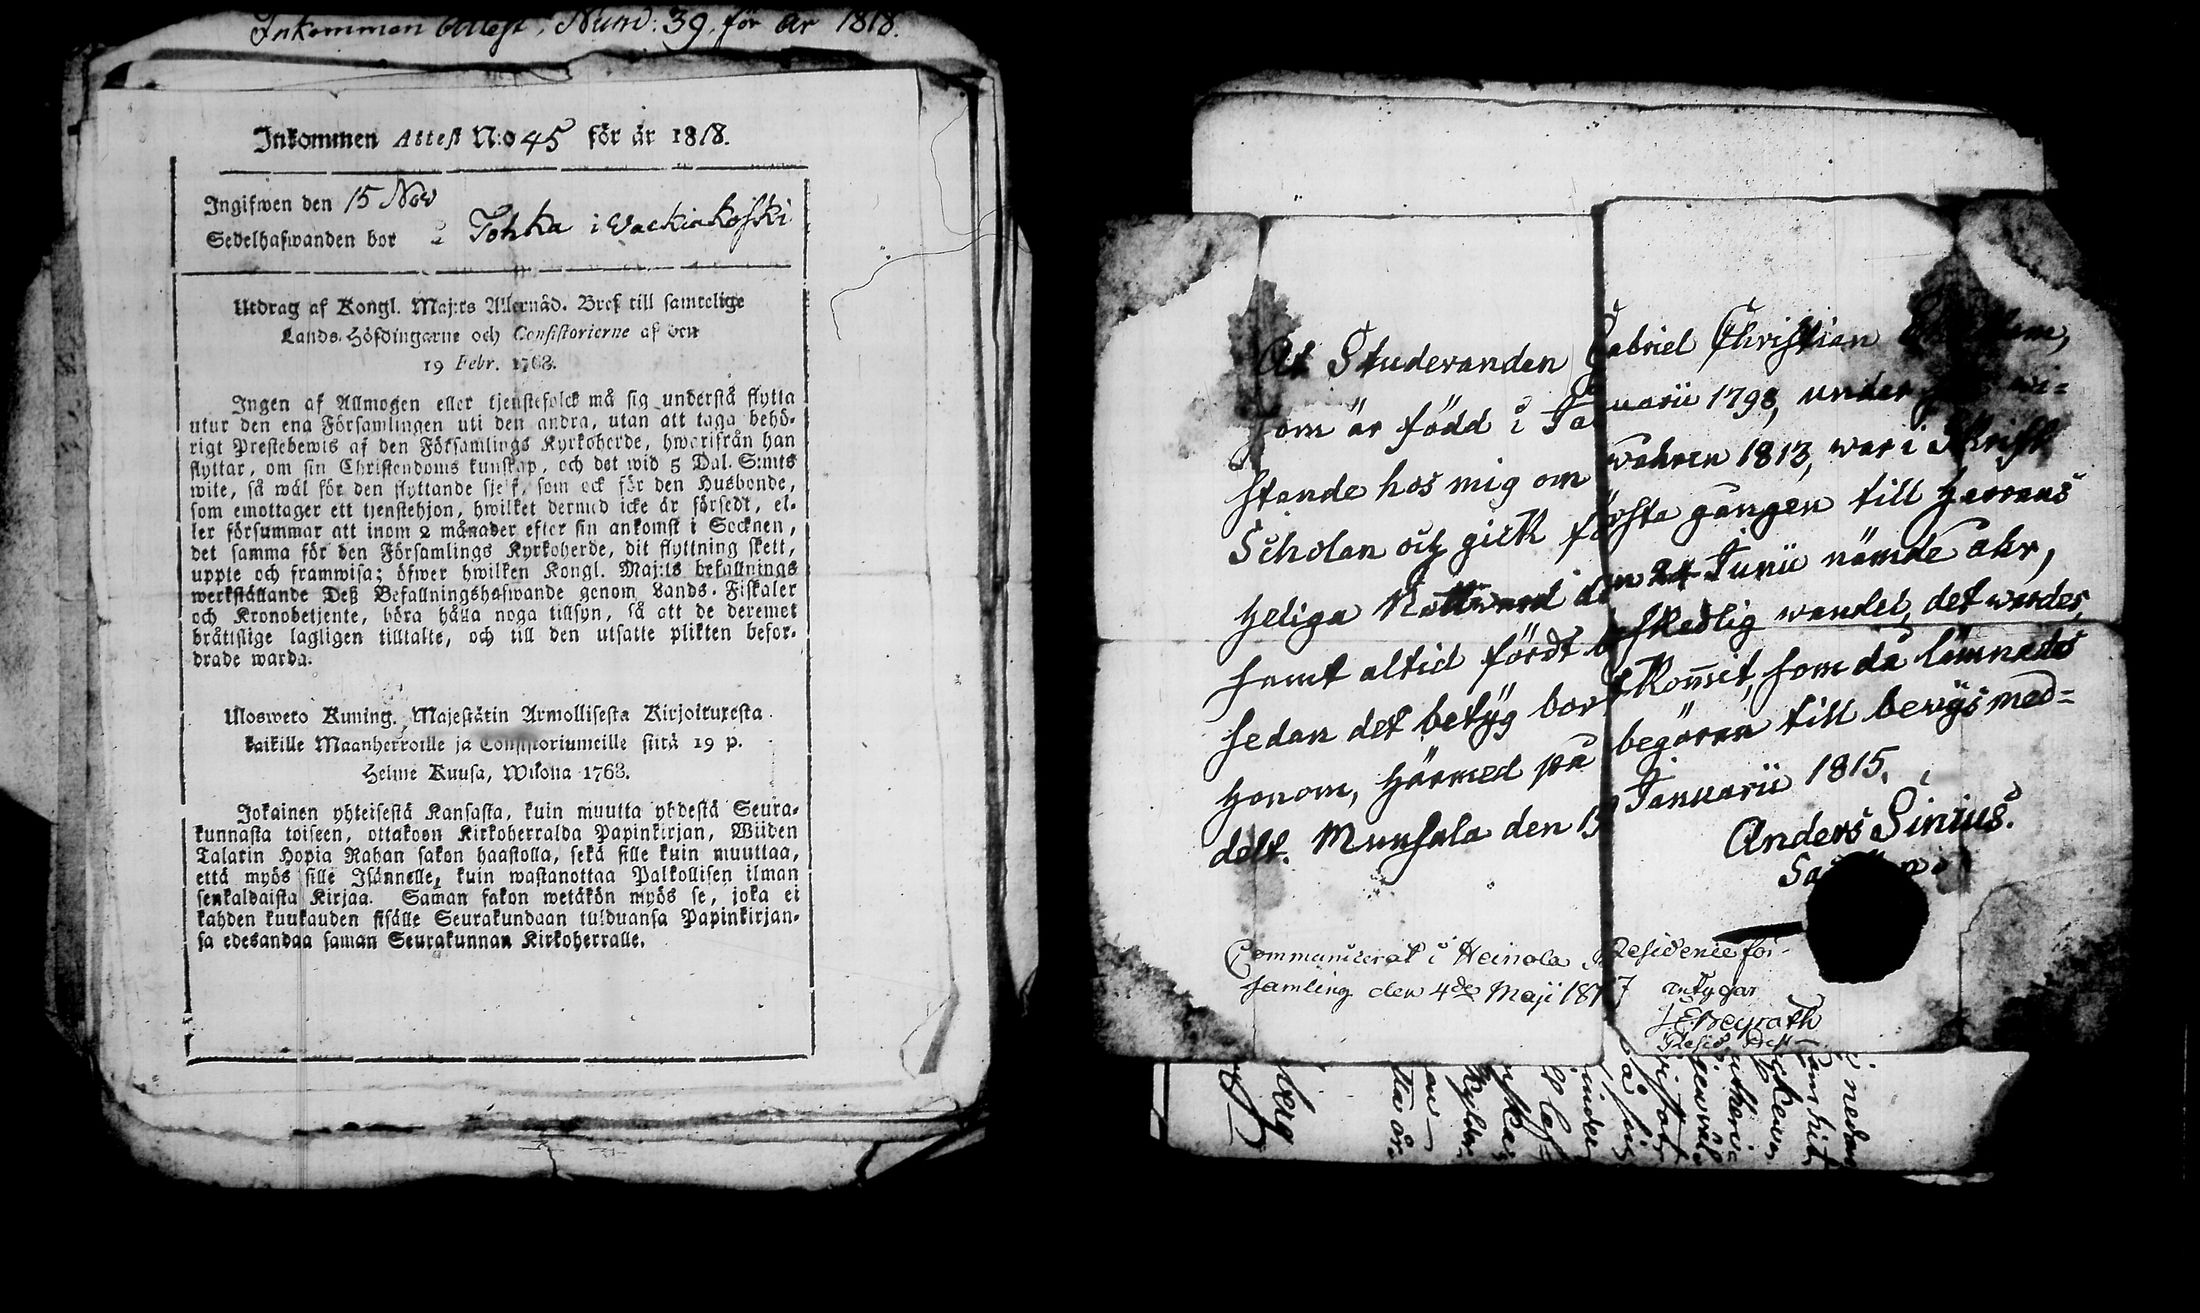 Inkommen Attest, Num: 39. för år 1818.
Inkommen Attest N:o 45 för år 1818.
Ingifwen den 15 Nov
Sedelhafwanden bor i Tohka i Wackiakoski
Utdrag af Kongl. Maj:ts Allernåd. Bref till samtelige
Lands-Höfdingarne och Consistorierne af den
19 Febr. 1763.
Ingen af Allmogen eller tjenstefolck må sig understå flytta
utur den ena Församlingen uti den andra, utan att taga behö-
rigt Prestebewis af den Församlings Kyrkoherde, hwarifrån han
flyttar, om sin Christendoms kunskap, och det wid 5 Dal. S:mts
wite, så wäl för den flyttande sjelf, som ock för den Husbonde,
som emottager ett tjenstehjon, hwilket dermed icke är försedt, el-
ler försummar att inom 2 månader efter sin ankomst i Socknen,
det samma för den Församlings Kyrkoherde, dit flyttning skett,
uppte och framwisa; öfwer hwilken Kongl. Maj:ts befallnings
werkställande Deß Befallningshafwande genom Lands-Fiskaler
och Kronobetjente, böra hålla noga tillsyn, så att de deremot
bråttslige lagligen tilltalte, och till den utsatte plikten befor-
drade warda.
Ulosweto Kuning. Majestätin Armollisesta Kirjoituxesta
kaikille Maanherroille ja Consistoriumeille siitä 19 p.
Helme Kuusa, Wuonna 1763.
Jokainen yhteisestä Kansasta, kuin muutta yhdestä Seura-
kunnasta toiseen, ottakoon Kirkoherralda Papinkirjan, Wiiden
Talarin Hopia Rahan sakon haastolla, sekä sille kuin muuttaa,
että myös sille Isännelle, kuin wastanottaa Palkollisen ilman
senkaldaista Kirjaa. Saman sakon wetäkön myös se, joka ei
kahden kuukauden sisälle Seurakundaan tulduansa Papinkirjan-
sa edesandaa saman Seurakunnan Kirkoherralle.
At Studeranden Gabriel Christian
som är född i Januarii 1798, under
stande hos mig om wåhren 1813, war i Skrift
Scholan och gick första gången till Herrans
Heliga Nattward den 24 Junii nämde åhr,
samt altid fördt beskedlig wandel, det warder,
sedan det betÿg bortkom̅it, som då lämnades
honom, härmed på begäran till bevÿs med-
delt. Munsala den 19 Januarii 1815.
Anders Sinius.
Communicerat i Heinola Residence för-
samling den 4de Maji 1817 antygar